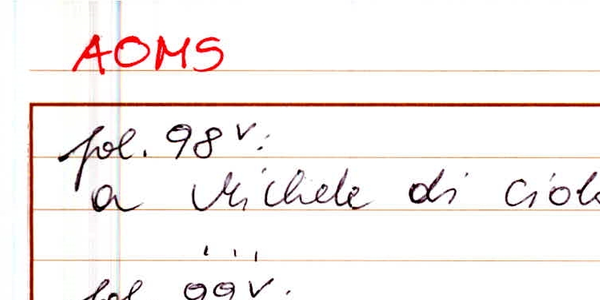 AOMS
fol. 98v:
a Michele di
...
fol. 99v.